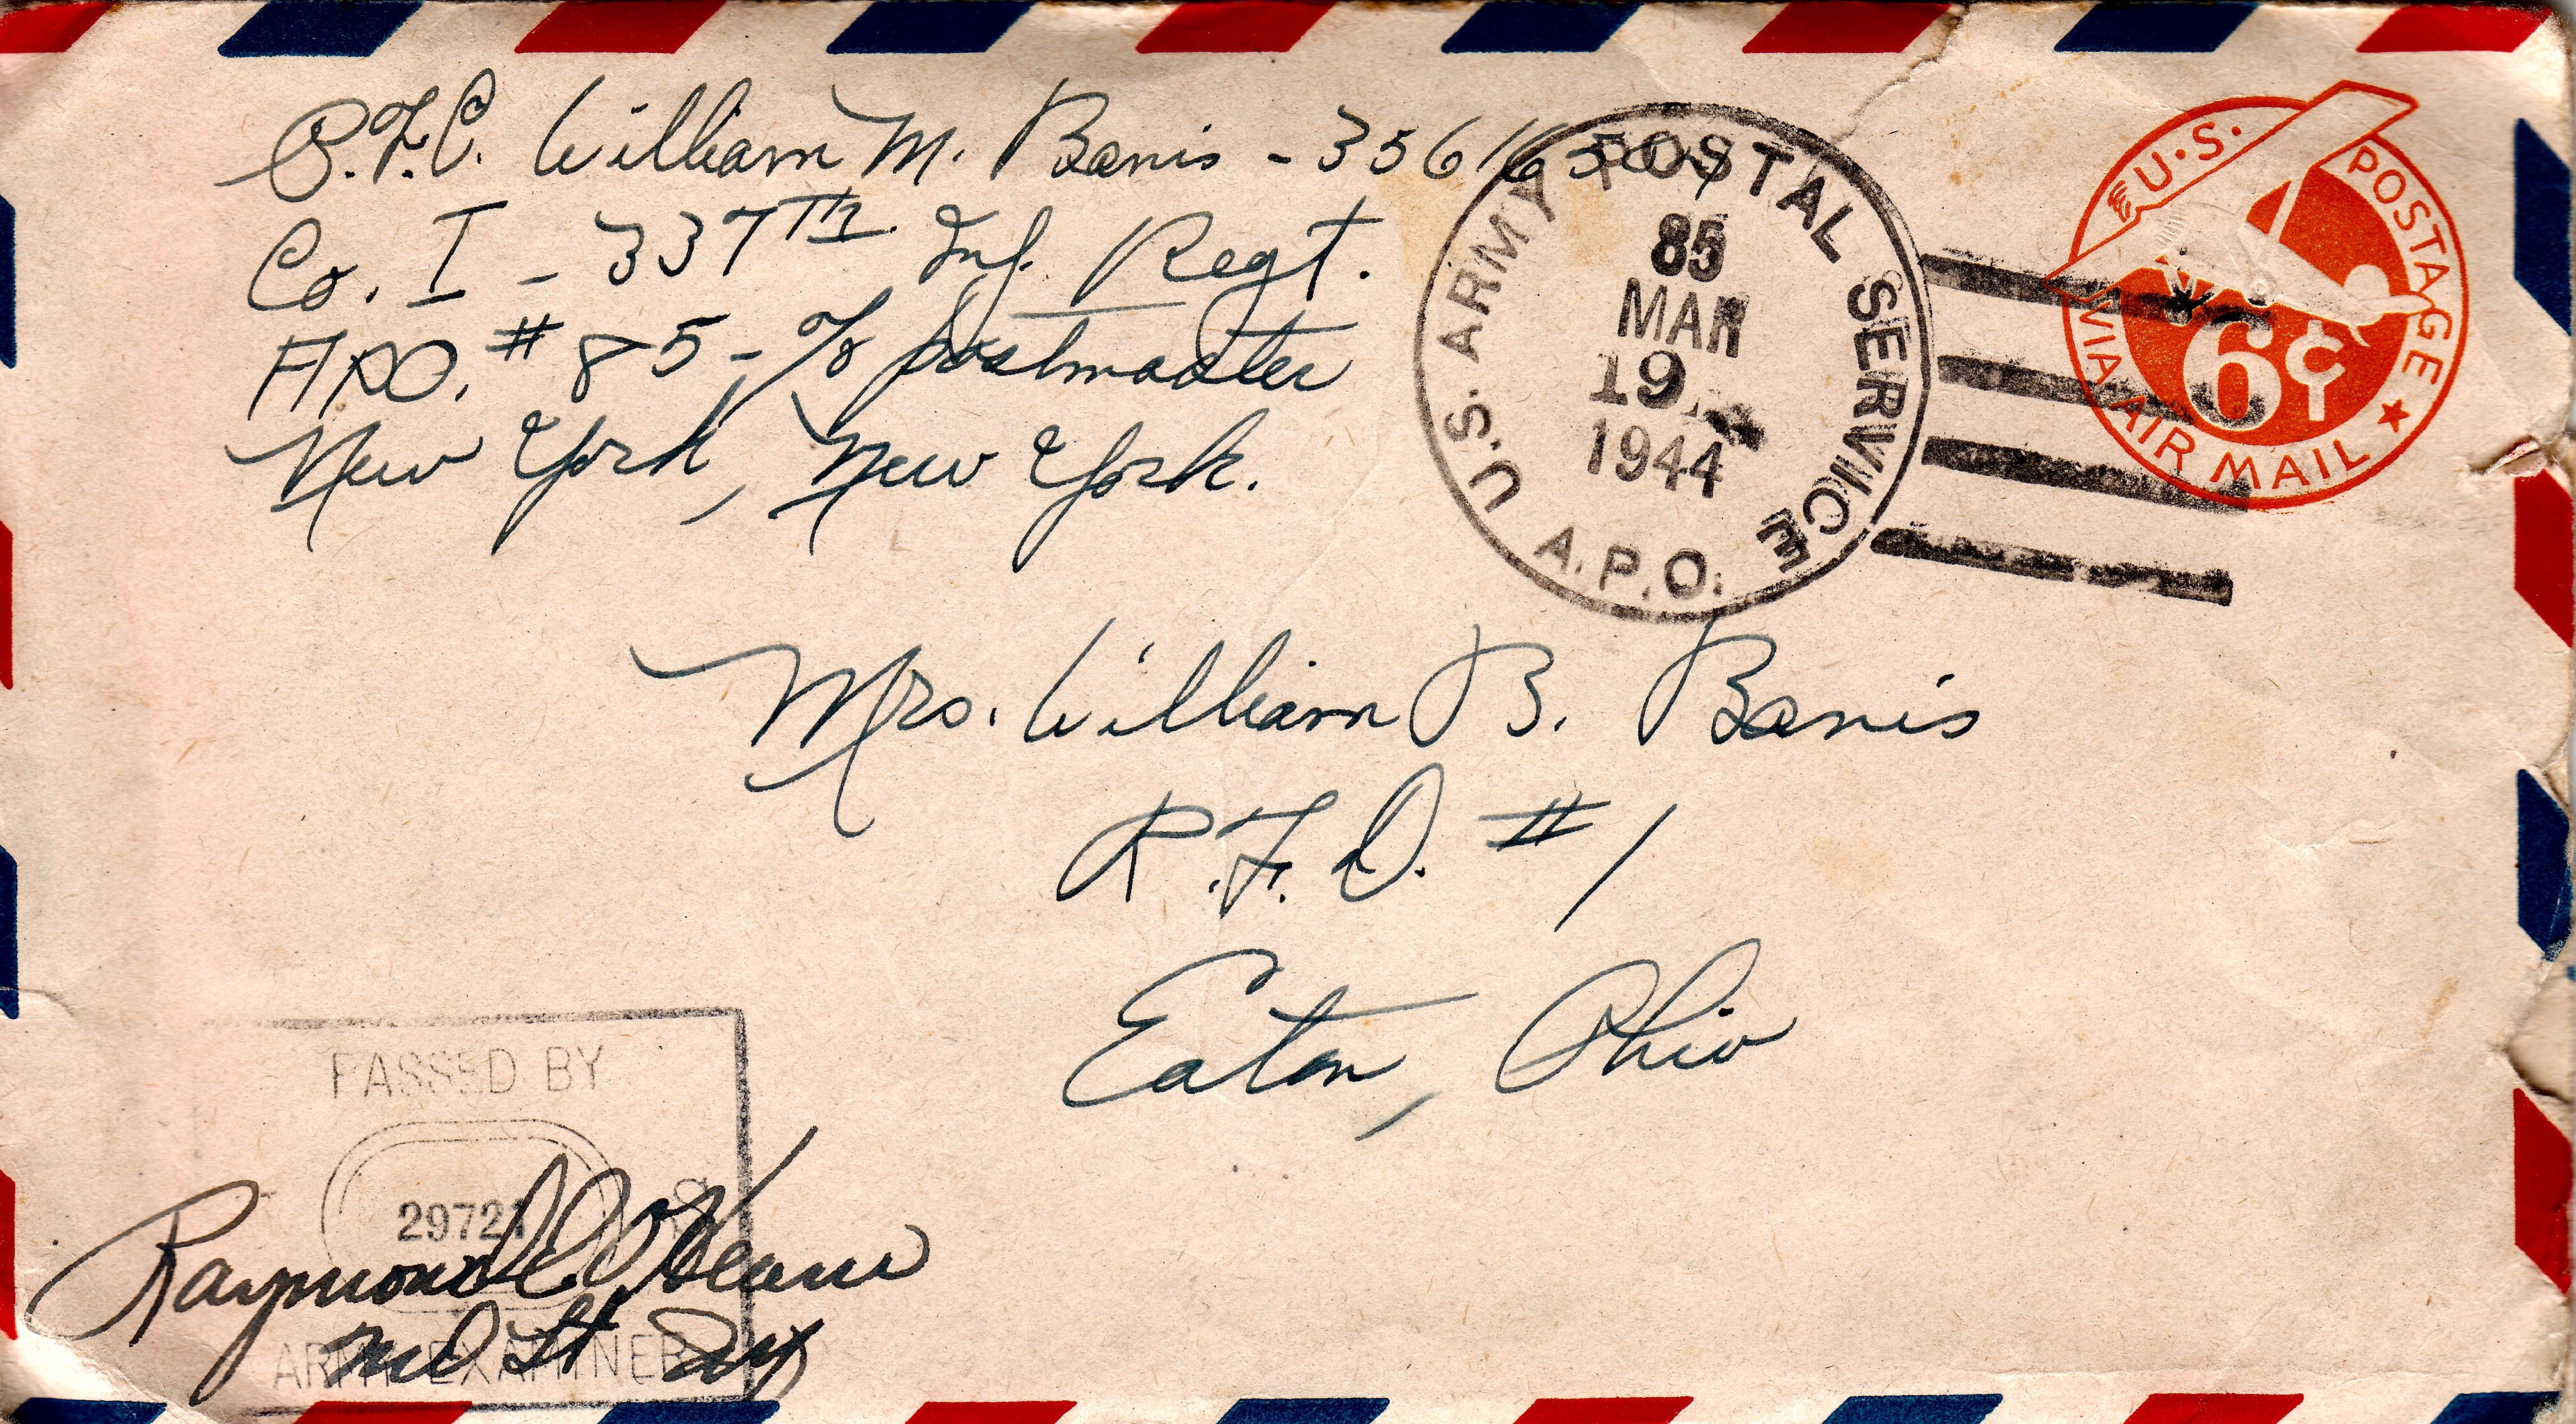 P.F.C. William M. Banis - 356
Co. I - 337TH Inf. Regt.
APO. # 85 - c/o postmaster
New York, New York.
U.S. ARMY POSTAL SERVICE
85
MAR
19
1944
A.P.O.
U.S. POSTAGE
6¢
VIA AIR MAIL
Mrs. William B. Banis
R.F.D. #1
Eaton, Ohio
PASSED BY
2972
ARMY EXAMINER
Raymond
2nd Lt Inf